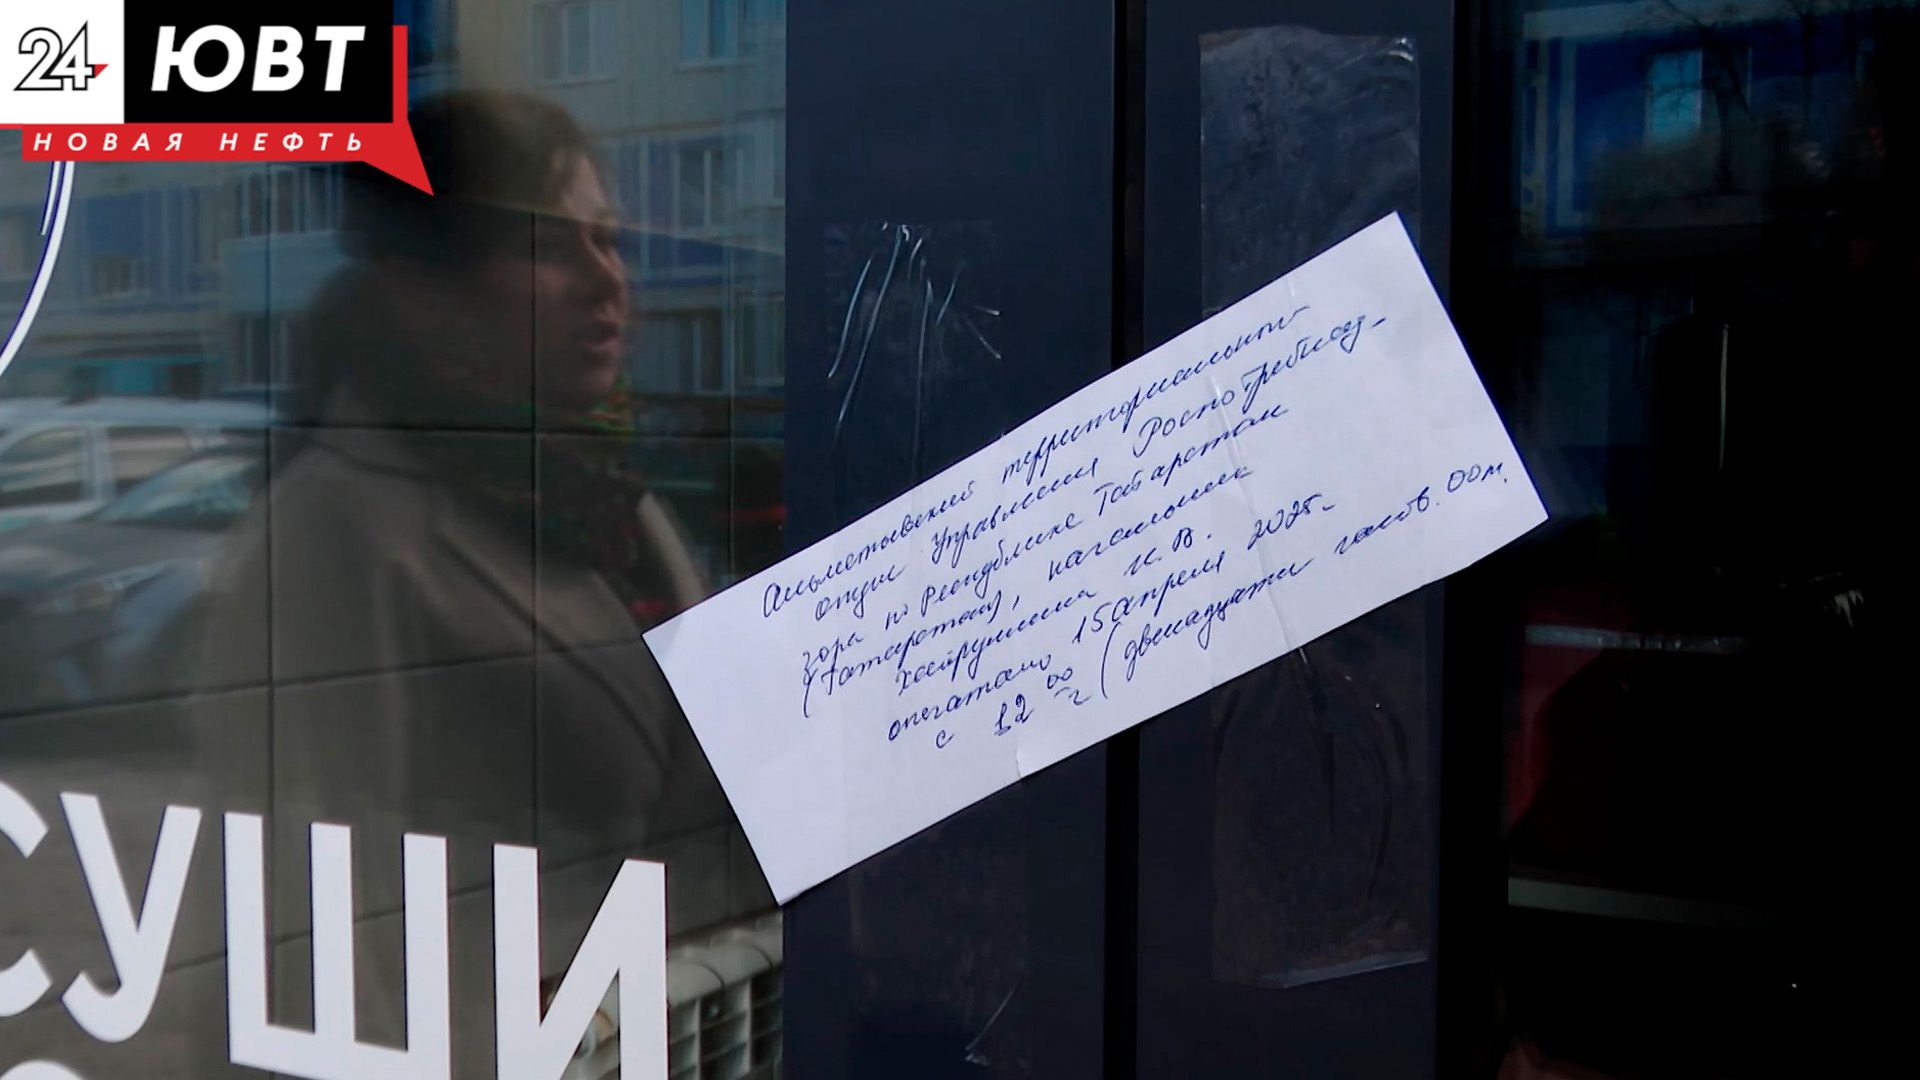 24 ЮВТ
НОВАЯ НЕФТЬ
Альметьевский территориальный
отдел Управления Роспотребнад-
зора по Республике Татарстан
(Татарстан), начальник
Хайруллина И.В.
опечатано 15 апреля 2025г.
с 12 00 ч (двенадцати часов. 00 м.
СУШИ